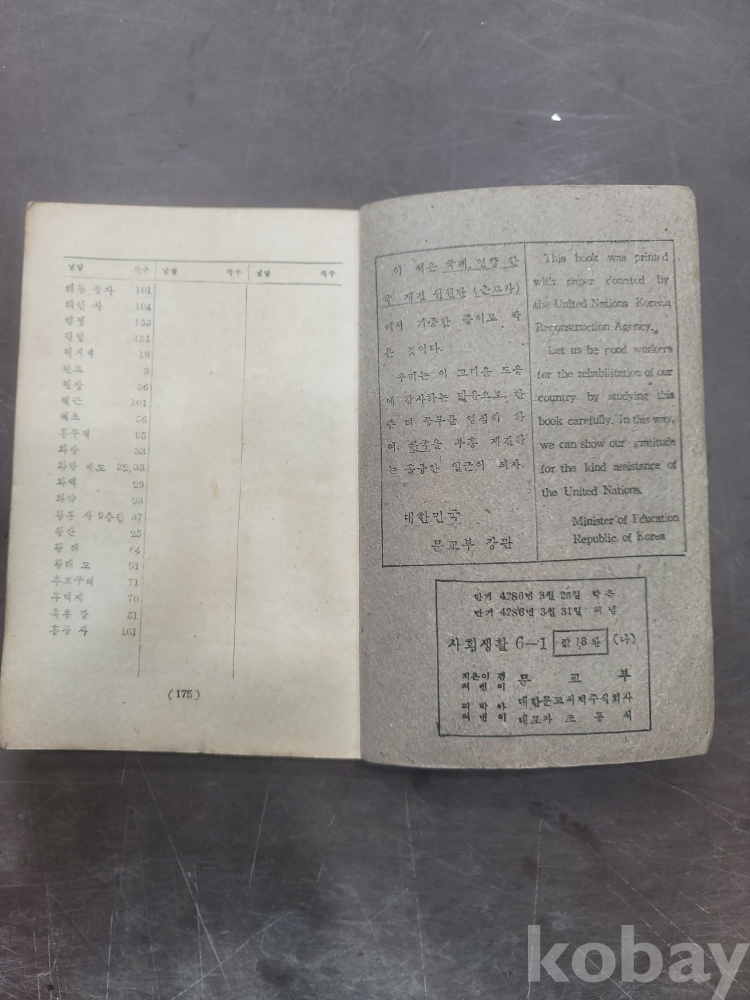 낱말 쪽수 낱말 쪽수 낱말 쪽수
101
104
행정 153
151
혁거세 18
현고 8
현상 56
혜근 101
혜초 56
홍두적 95
화랑 33
화랑 제도 32,33
화백 29
화약 93
황룡 사 9층탑 37
황산 25
황해 64
황해 도 91
후고구려 71
후백제 70
흑룡 강 51
흥왕 사 101
(175)
이 책은 국제 연합 한
국 재건 위원단 (운끄라)
에서 기증한 종이로 박
은 것이다.
우리는 이 고마운 도움
에 감사하는 마음으로, 한
층 더 공부를 열심히 하
여, 한국을 부흥 재건하
는 훌륭한 일군이 되자.
대한민국
문교부 장관
This book was printed
with paper donated by
the United Nations Korean
Reconstruction Agency.
Let us be good workers
for the rehabilitation of our
country by studying this
book carefully. In this way,
we can show our gratitude
for the kind assistance of
the United Nations.
Minister of Education
Republic of Korea
단기 4286년 3월 25일 박은
단기 4286년 3월 31일 펴냄
사회생활 6-1 값 18환 (나)
지은이 겸 문교부
펴낸이
대한문교서적주식회사
펴낸이 대표자 조동식
kobay